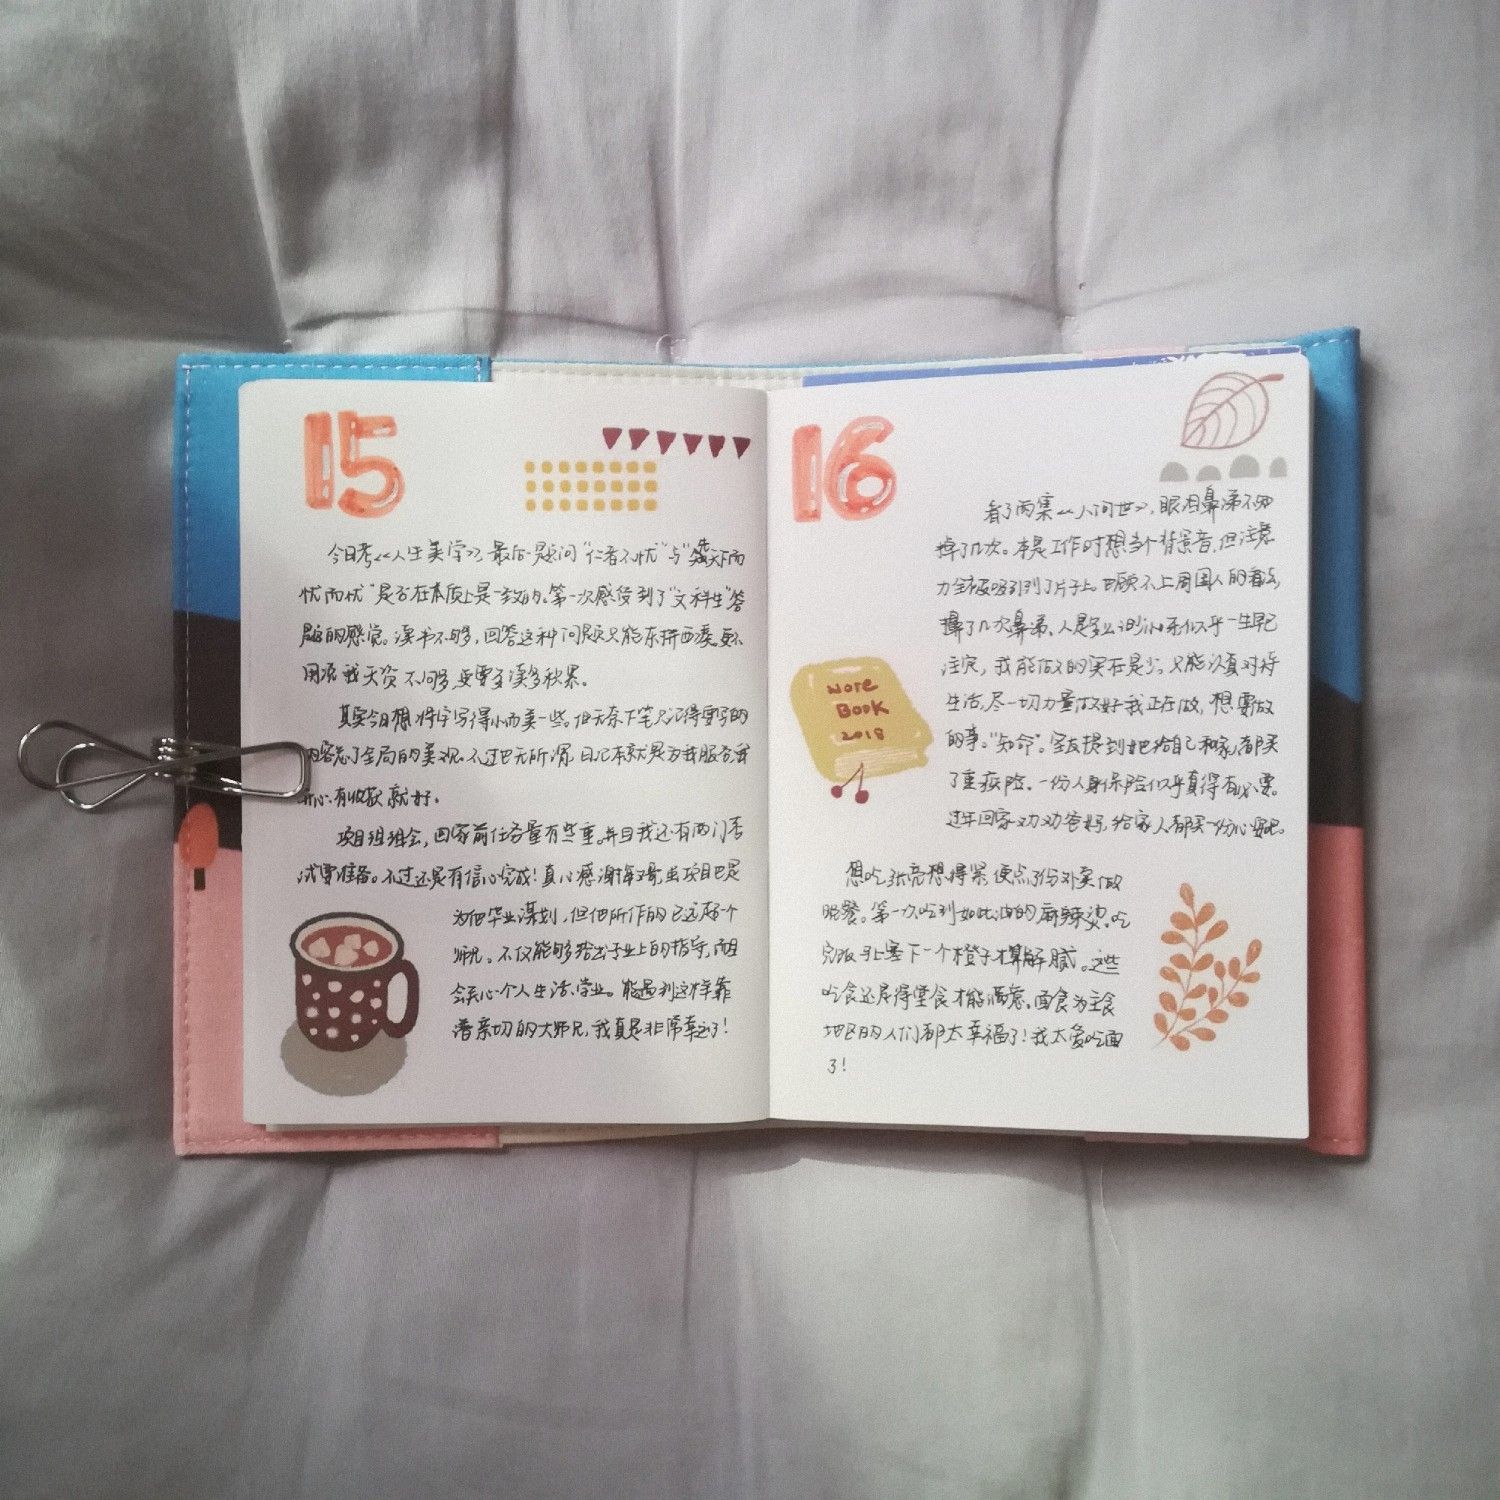 15
今日考《人生美学》，最后一题问“仁者不忧”与“先天下而
忧而忧”是否在本质上是一致的。第一次感受到了“文科生”答
题的感觉。读书不够，回答这种问题只能东拼西凑。更不
用说我天资不何多，更要多读多积累。
其实今日想将字写得小而美一些。但无奈下笔只记得要写的
内容忘了全局的美观。不过也无所谓，日记本就是为我服务我
开心有收获就好。
项目组组会，回家前任务量有些重。并且我还有两门考
试要准备。不过还是有信心完成！真心感谢每次
为他毕业谋划，但他所作的已远超一个
师兄。不仅能够给出专业上的指导，而且
会关心个人生活、学业。能遇到这样靠
谱亲切的大师兄，我真是非常幸运了！
16
看了两集《人间世》，眼泪鼻涕不知
掉了几次。本是工作时想当个背景音，但注意
力全被吸引到了片子上。也顾不上周围人的看法，
擤了几次鼻涕。人是多么的似乎一生早已
注定，我能做的实在是少。只能认真对待
生活，尽一切力量做好我正在做，想要做
的事。“知命”。室友提到她给自己和家人都买
了重疾险。一份人身保险似乎真得有必要。
过年回家劝劝爸妈，给家人都买一份心安吧。
More
Book
2018
想吃张亮想得紧，便点了份外卖做
晚餐。第一次吃到如此油的麻辣烫。吃
完饭马上塞下一个橙子才算解腻。这些
吃食还是得堂食才能满意。面食为主食
地区的人们都太幸福了！我太爱吃面
了！